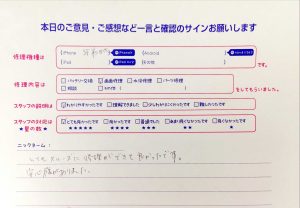 本日のご意見・ご感想など一言と確認のサインお願いします
修理機種は
iPhone
Android
iPad
その他
です。
修理内容は
バッテリー交換 画面修理 水没修理 パーツ修理
相談 SIMカード その他
をしてもらいました。
スタッフの説明は わかりやすかったです 理解できました 少しわかりにくかったです 難しかったです
スタッフの対応は とても良かったです 良かったです 普通でした あまり良くなかったです 良くなかったです
★星の数★ ★★★★★ ★★★★ ★★★ ★★ ★
ニックネーム：
とてもスムーズに修理ができて良かったです。
安心感がありました。